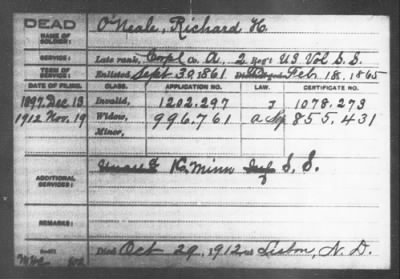 DEAD
NAME OF SOLDIER: O'Neale, Richard H.
SERVICE: Late rank, Corpl Co. A, 2 Reg't US Vol S.S.
TERM OF SERVICE: Enlisted Sept 30, 1861 Feb. 18, 1865
DATE OF FILING. CLASS. APPLICATION NO. LAW. CERTIFICATE NO.
1897, Dec 13 Invalid, 1202.297 J 1078.273
1912 Nov. 19 Widow, 996.761 855.431
Minor,
ADDITIONAL SERVICES: K. Minn Inf S. S.
REMARKS:
Died Oct 29, 1912, at Lisbon, N. D.